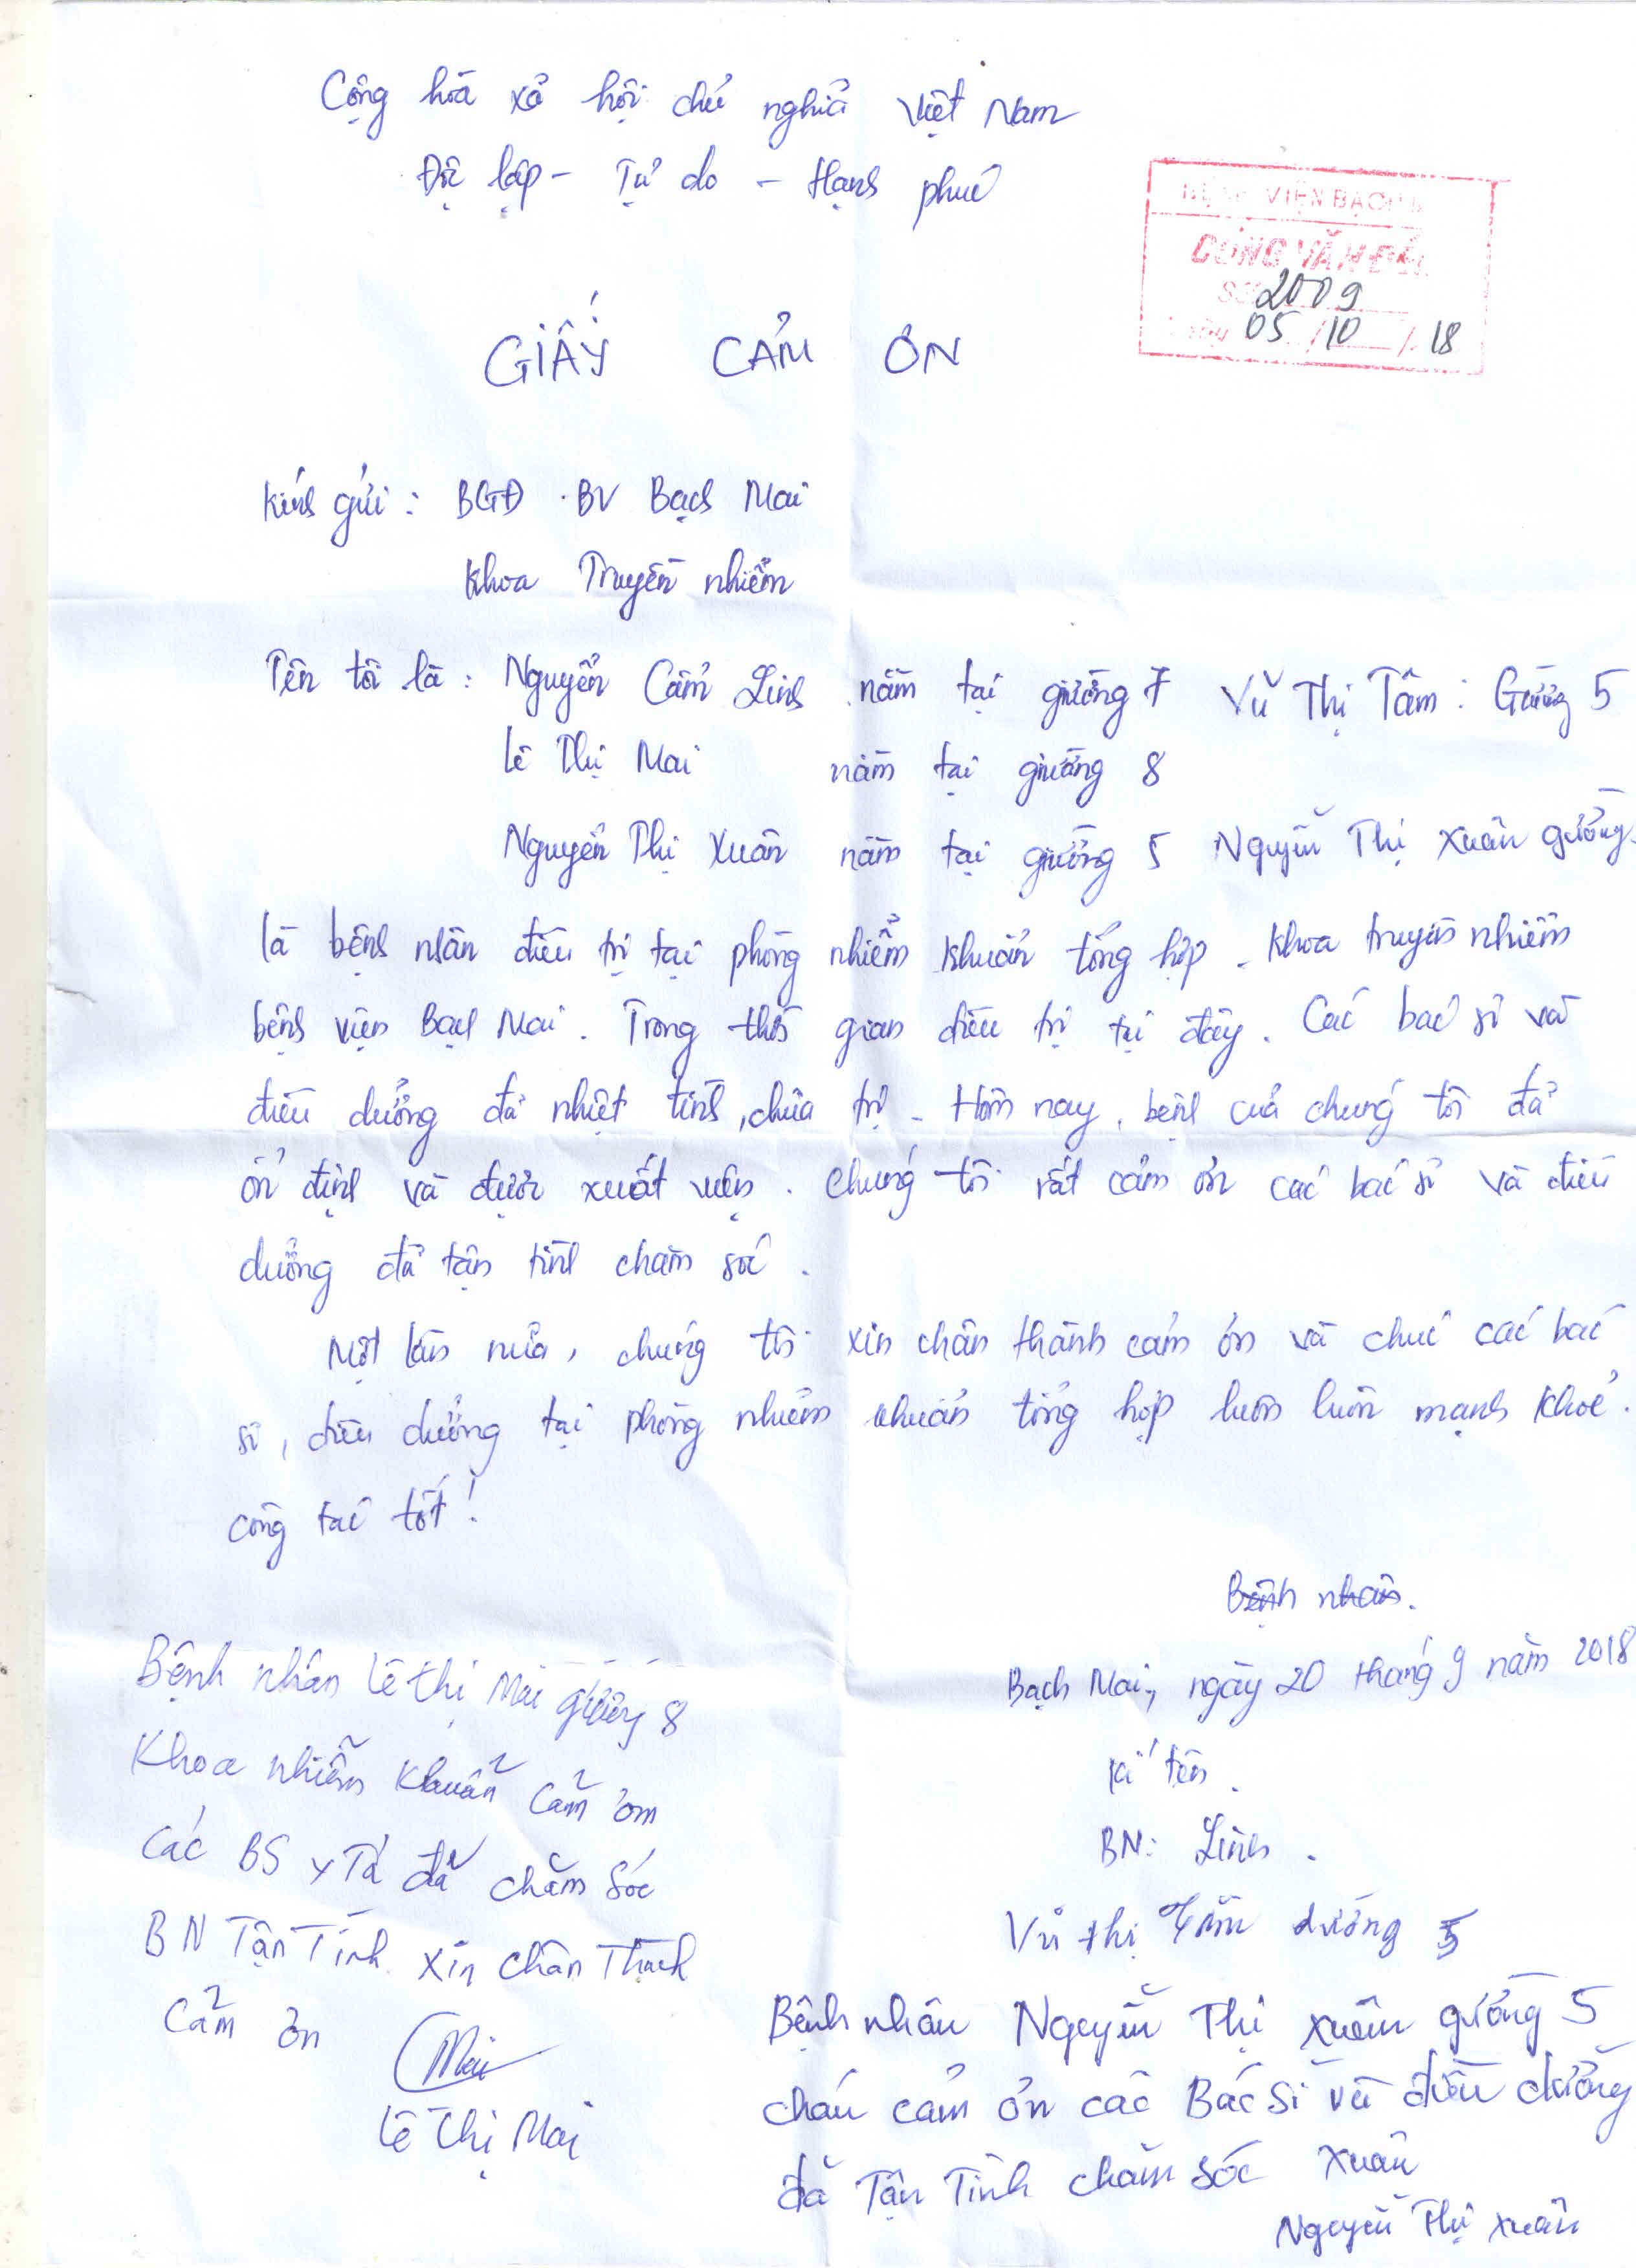 Cộng hòa xả hội chủ nghỉa Việt Nam
Độc lập - Tự do - Hạnh phúc
BỆNH VIỆN BẠCH M
CÔNG VĂN ĐẾN
Số 2009
Ngày 05/10/18
GIẤY CẢM ƠN
Kính gửi : BGĐ . BV Bạch Mai
Khoa Truyền nhiểm
Tên tôi là : Nguyển Cẩm Linh nằm tại giường 7 Vũ Thị Tâm : Gường 5
Lê Thị Mai nằm tại giường 8
Nguyển Thị Xuân nằm tại giường 5 Nguyễn Thị Xuân gường
là bệnh nhân điều trị tại phòng nhiểm khuẩn tổng hợp - Khoa truyền nhiểm
bệnh viện Bạch Mai . Trong thời gian điều trị tại đây . Các bác sỉ và
điều dưởng đả nhiệt tình , chửa trị - Hôm nay , bệnh của chúng tôi đả
ổn định và được xuất viện . Chúng tôi rất cảm ơn các bác sỉ và điều
dưởng đả tận tình chăm sóc .
Một lần nửa , chúng tôi xin chân thành cảm ơn và chúc các bác
sỉ , điều dưởng tại phòng nhiểm khuẩn tổng hợp luôn luôn mạnh khoẻ .
công tác tốt !
Bệnh nhân .
Bạch Mai , ngày 20 tháng 9 năm 2018
Kí tên .
BN : Linh .
Vũ thị Tâm dường 5
Bệnh nhân Lê thị Mai giường 8
Khoa nhiễm khuẩn cảm ơm
Các BS y Tá đã chăm sóc
BN Tận Tình xin chân Thành
Cảm ơn
Mai
Lê Thị Mai
Bệnh nhân Nguyễn Thị Xuân gường 5
cháu cảm ơn các Bác Sỉ và điều dưởng
đã Tận Tình chăm sóc Xuân
Nguyễn Thị Xuân